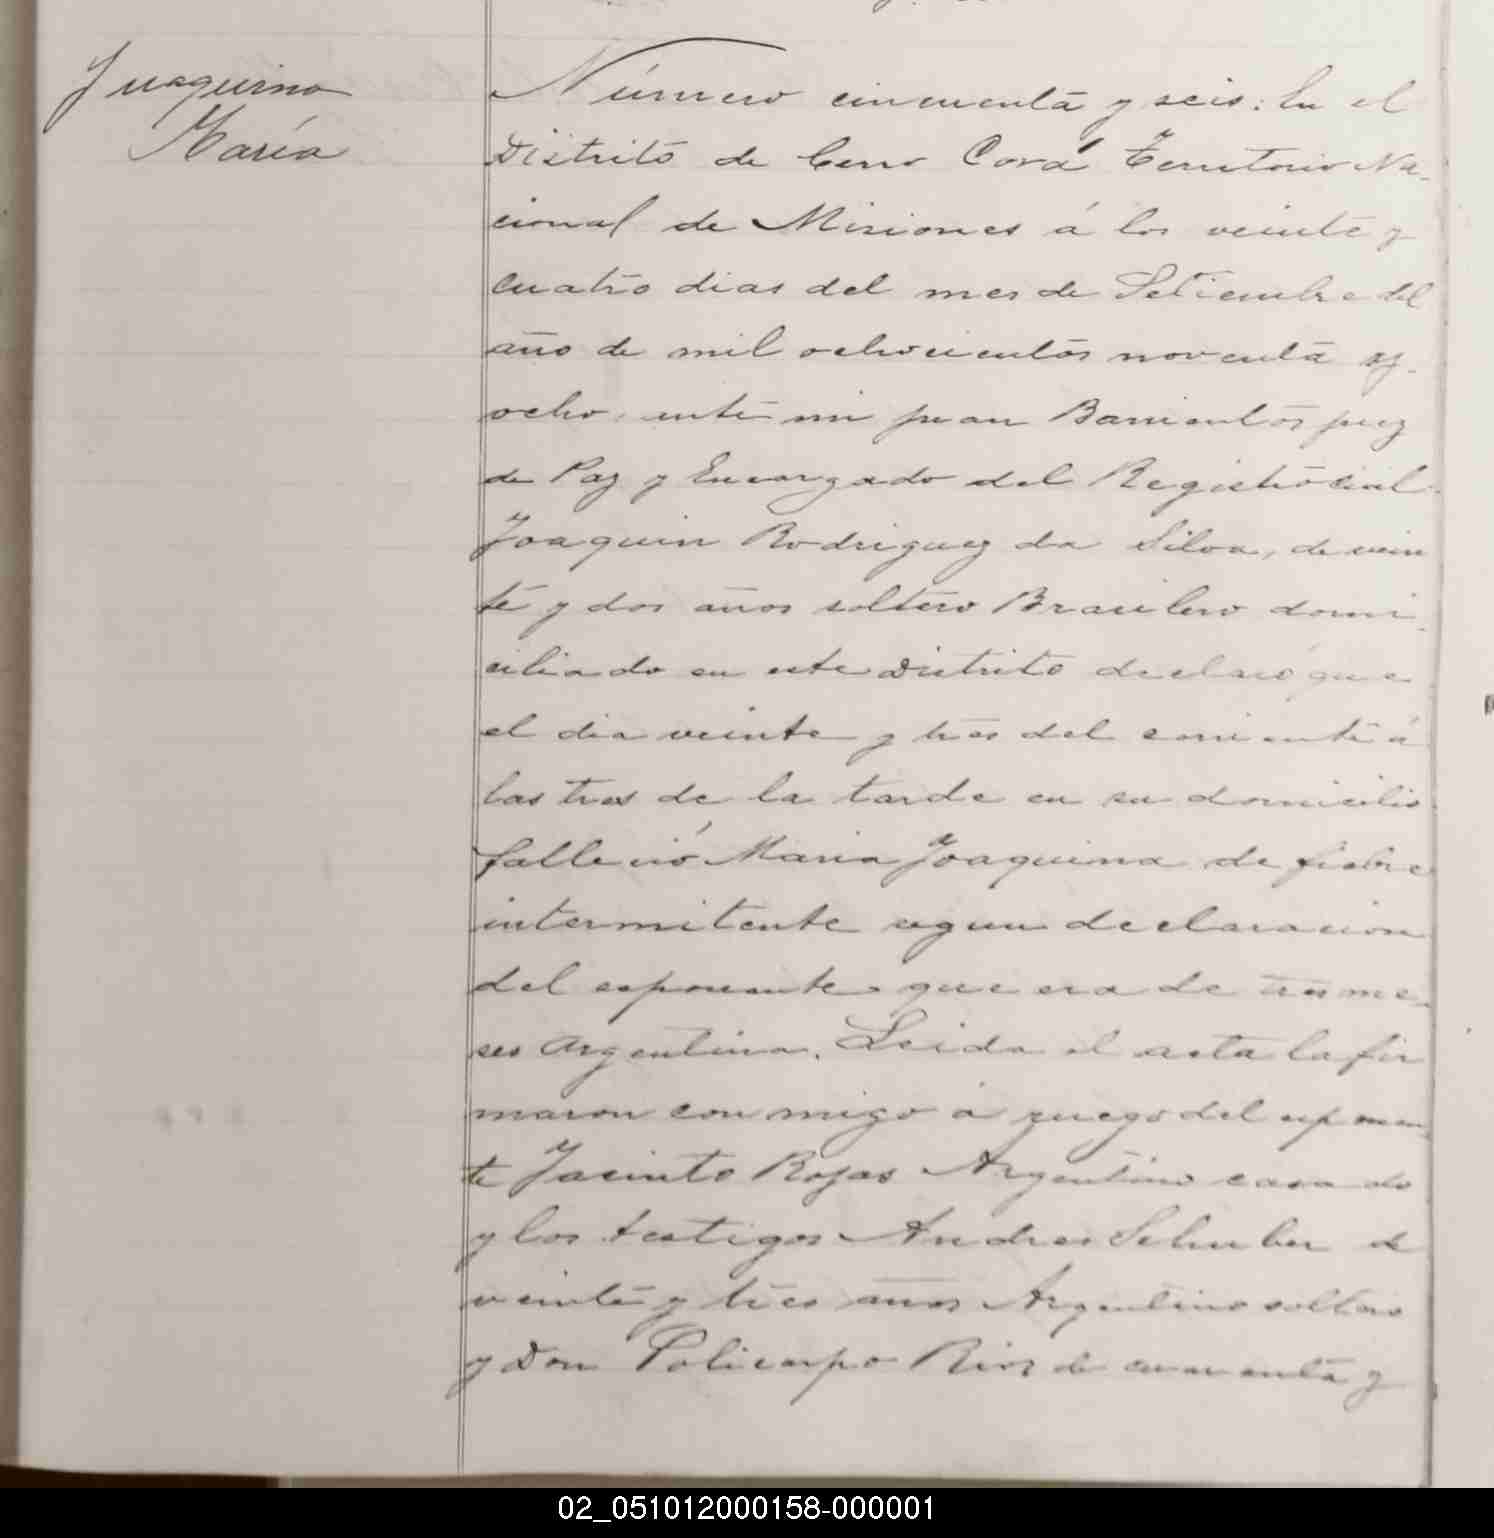 Juaquina
María
Número cincuenta y seis: En el
Distrito de Cerro Corá Territorio Na-
cional de Misiones á los veinte y
cuatro dias del mes de Setiembre del
año de mil ochocientos noventa y
ocho, ante mi Juan Barrientos juez
de Paz y Encargado del Registro Civil
Joaquin Rodriguez da Silva, de vein
te y dos años soltero Brasilero domi-
ciliado en este Distrito declaró que
el dia veinte y tres del corriente á
las tres de la tarde en su domicilio
falleció Maria Joaquina de fiebre
intermitente segun declaracion
del esponente que era de tres me-
ses Argentina. Leida el acta la fir
maron conmigo a ruego del esponen-
te Jacinto Rojas Argentino casado
y los testigos Andres Schuber de
veinte y tres años Argentino soltero
y Don Policarpo Rios de cuarenta y
02_051012000158-000001